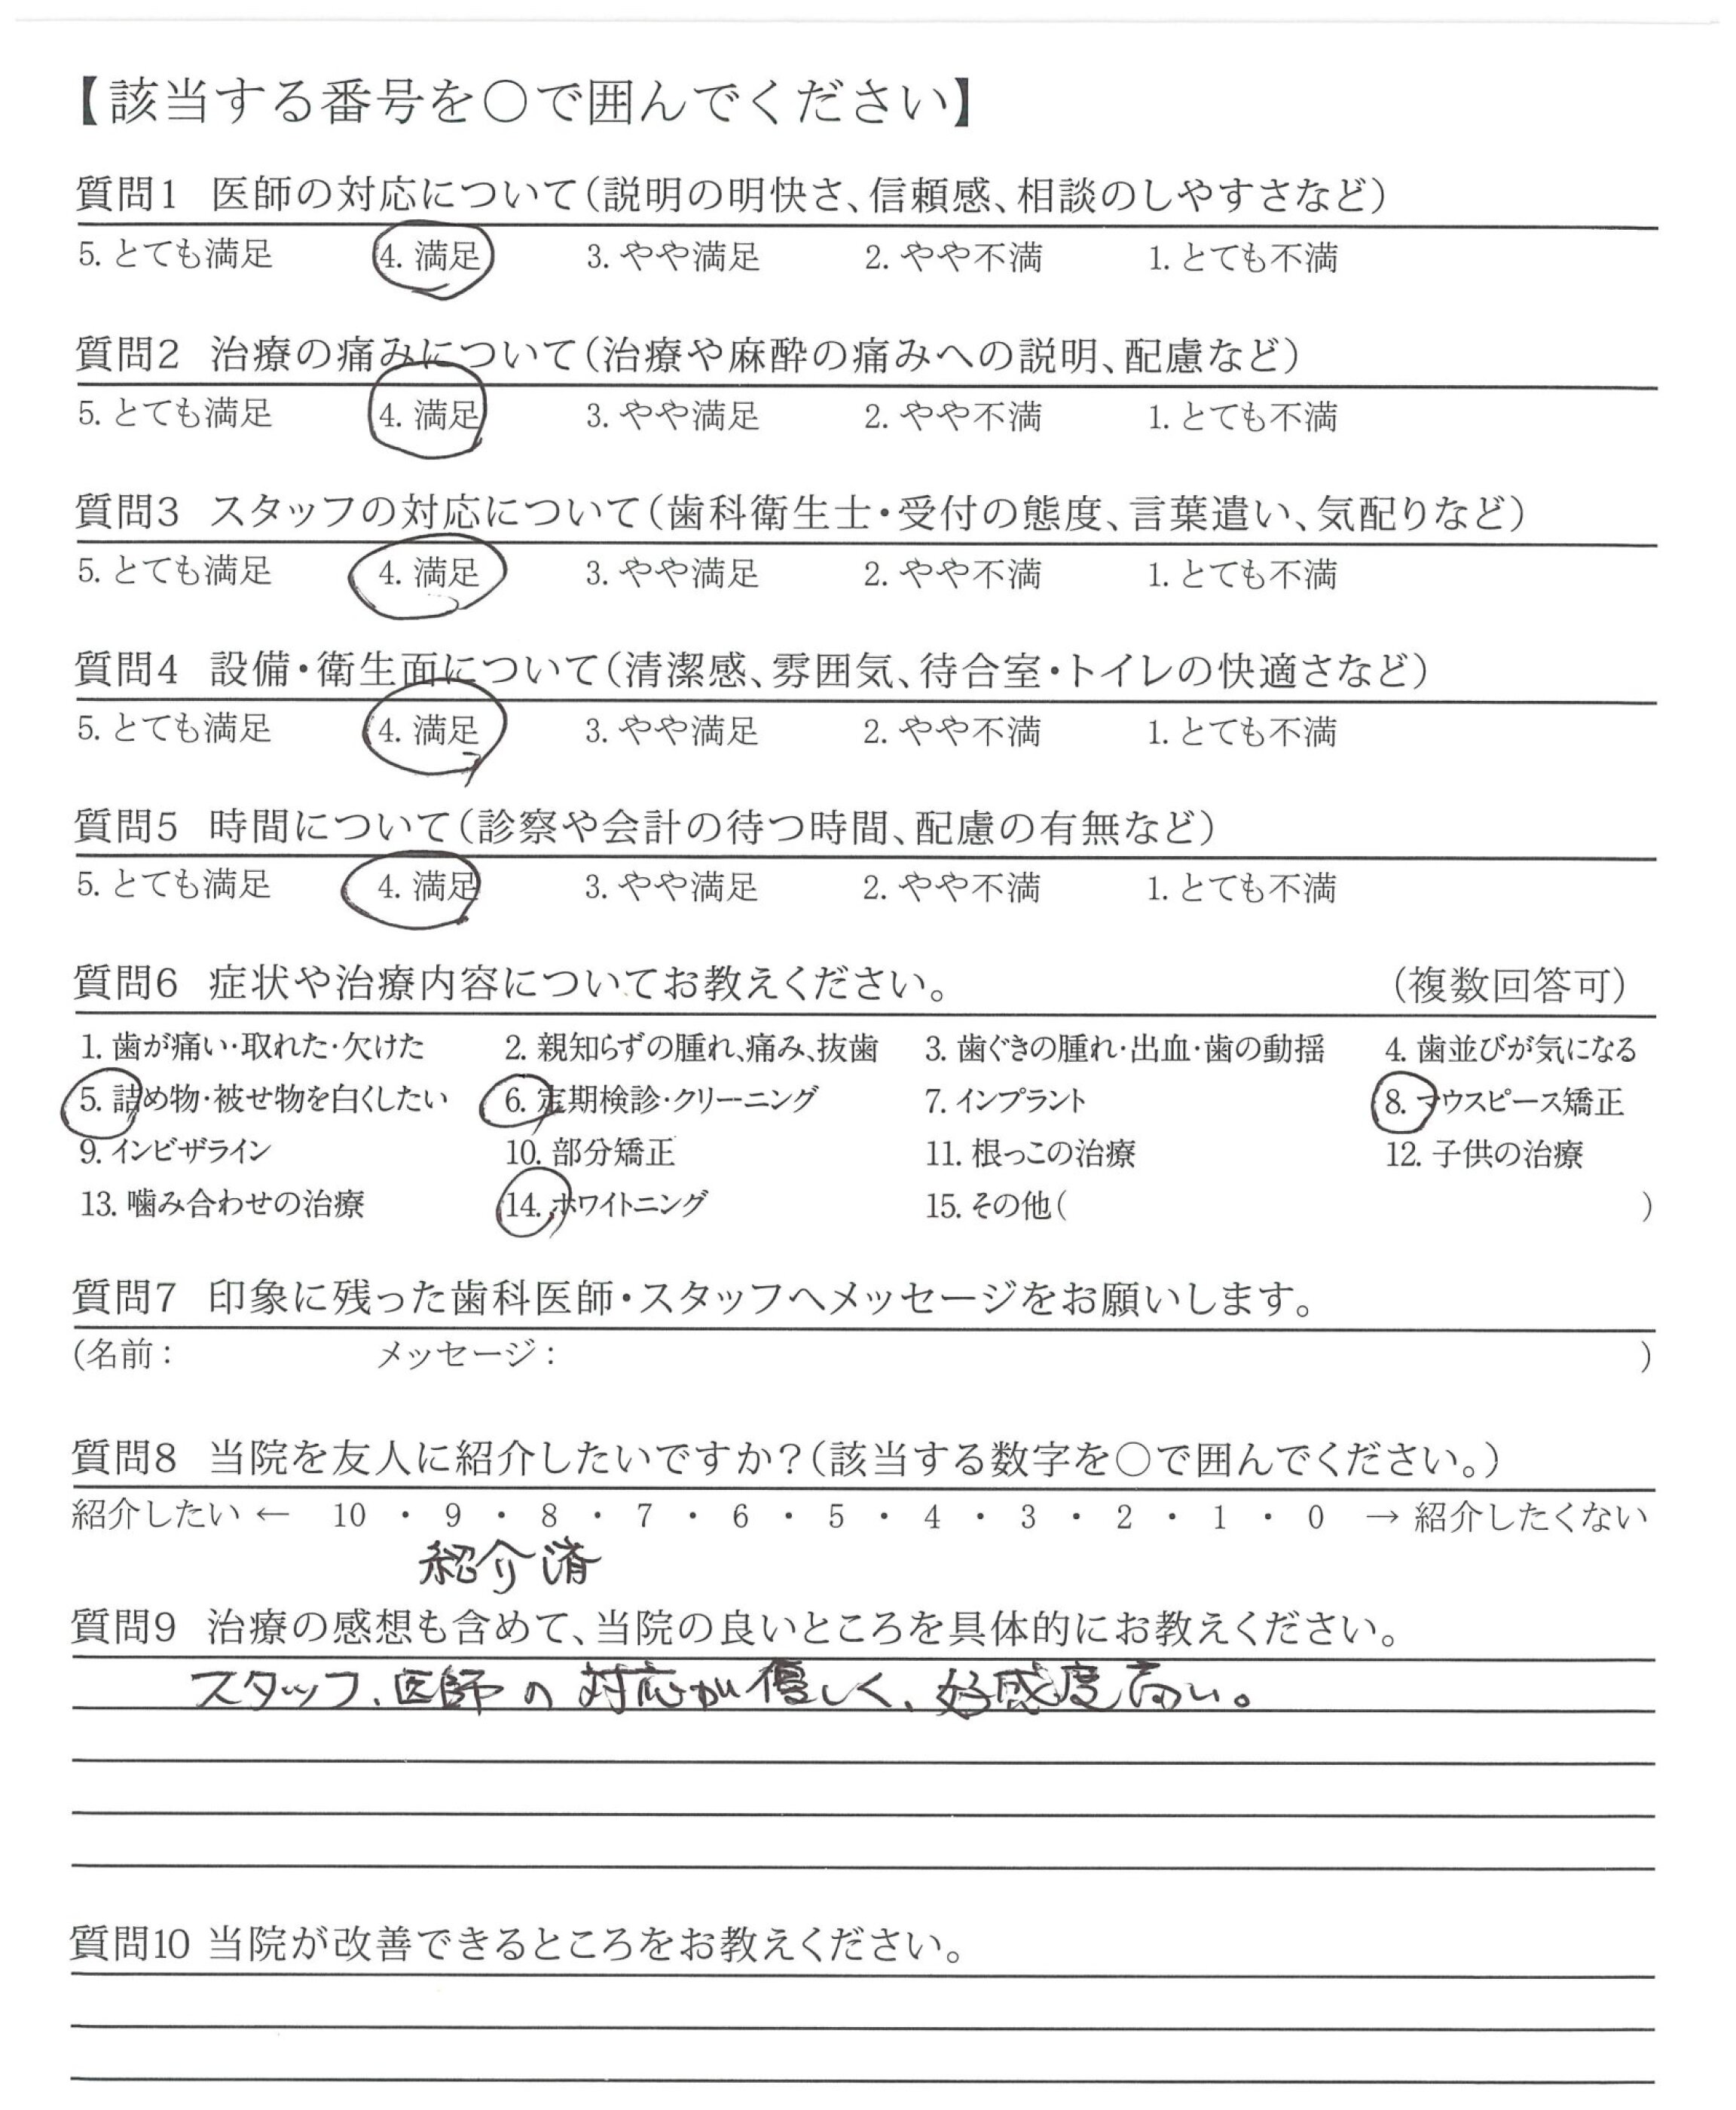 【該当する番号を○で囲んでください】
質問1 医師の対応について(説明の明快さ、信頼感、相談のしやすさなど)
5. とても満足 4. 満足 3. やや満足 2. やや不満 1. とても不満
質問2 治療の痛みについて(治療や麻酔の痛みへの説明、配慮など)
5. とても満足 4. 満足 3. やや満足 2. やや不満 1. とても不満
質問3 スタッフの対応について(歯科衛生士・受付の態度、言葉遣い、気配りなど)
5. とても満足 4. 満足 3. やや満足 2. やや不満 1. とても不満
質問4 設備・衛生面について(清潔感、雰囲気、待合室・トイレの快適さなど)
5. とても満足 4. 満足 3. やや満足 2. やや不満 1. とても不満
質問5 時間について(診察や会計の待つ時間、配慮の有無など)
5. とても満足 4. 満足 3. やや満足 2. やや不満 1. とても不満
質問6 症状や治療内容についてお教えください。 (複数回答可)
1. 歯が痛い・取れた・欠けた 2. 親知らずの腫れ、痛み、抜歯 3. 歯ぐきの腫れ・出血・歯の動揺 4. 歯並びが気になる
5. 詰め物・被せ物を白くしたい 6. 定期検診・クリーニング 7. インプラント 8. マウスピース矯正
9. インビザライン 10. 部分矯正 11. 根っこの治療 12. 子供の治療
13. 噛み合わせの治療 14. ホワイトニング 15. その他( )
質問7 印象に残った歯科医師・スタッフへメッセージをお願いします。
(名前: メッセージ: )
質問8 当院を友人に紹介したいですか?(該当する数字を○で囲んでください。)
紹介したい ← 10 ・ 9 ・ 8 ・ 7 ・ 6 ・ 5 ・ 4 ・ 3 ・ 2 ・ 1 ・ 0 → 紹介したくない
紹介済
質問9 治療の感想も含めて、当院の良いところを具体的にお教えください。
スタッフ、医師の対応が優しく、好感度高い。
質問10 当院が改善できるところをお教えください。